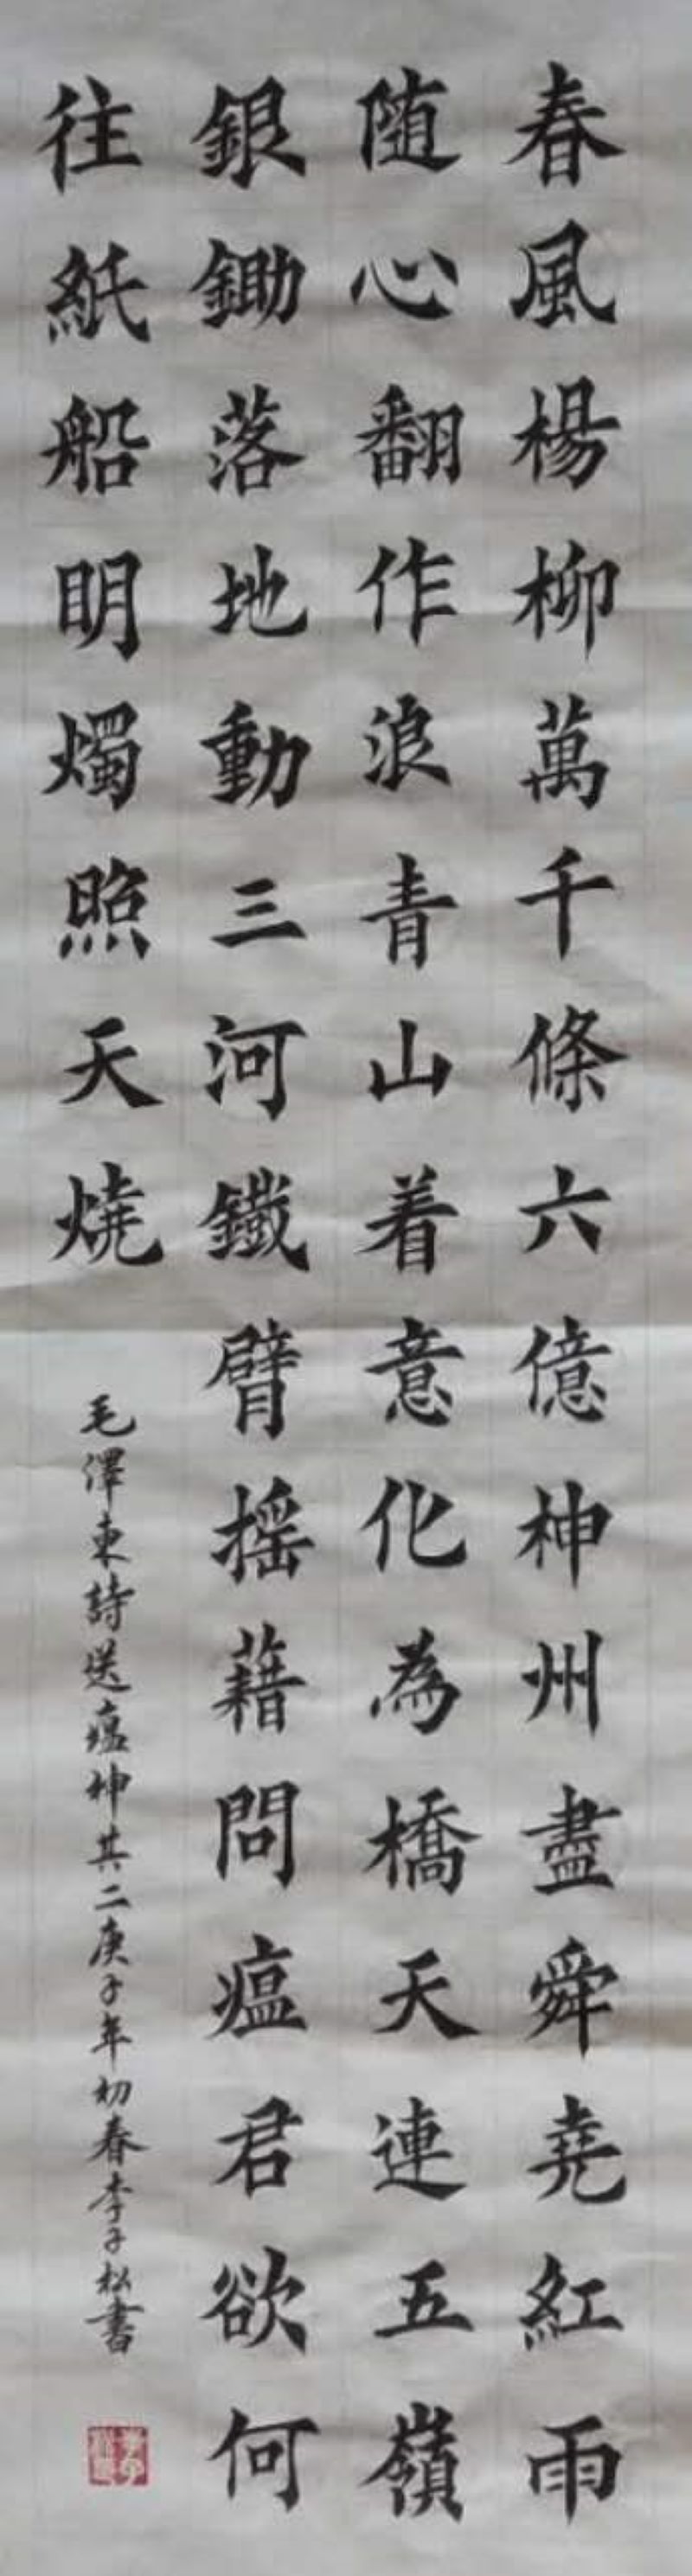 春風楊柳萬千條六億神州盡舜堯紅雨
随心翻作浪青山着意化為橋天連五嶺
銀鋤落地動三河鐵臂摇藉問瘟君欲何
往紙船明燭照天燒
毛澤東詩送瘟神其二庚子年初春李子松書